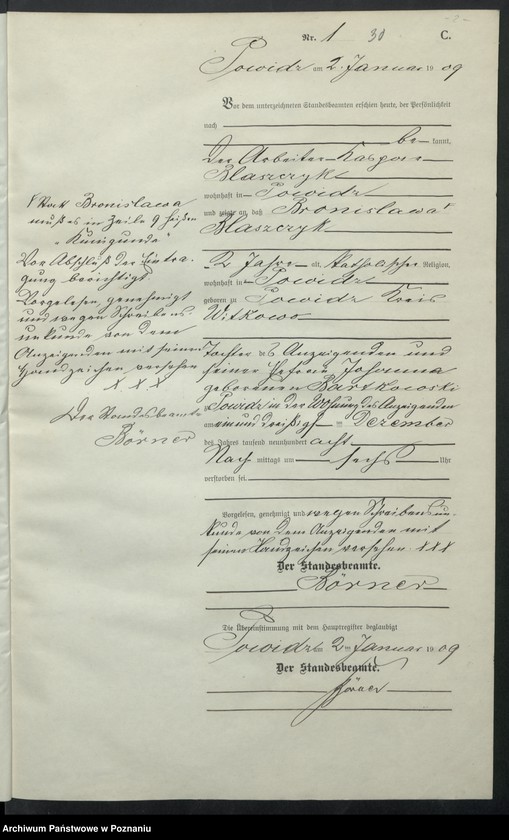 - 2 -
Nr. 1 30 C.
Powidz am 2. Januar 1909
Vor dem unterzeichneten Standesbeamten erschien heute, der Persönlichkeit
nach
be kannt,
der Arbeiter Kaspar
Blaszczyk
wohnhaft in Powidz
und zeigte an, daß Bronislawa
Blaszczyk
2 Jahre alt, katholischer Religion,
wohnhaft in Powidz
geboren zu Powidz Kreis
Witkowo
Tochter des Anzeigenden und
seiner Johanna
geborenen Bartkowski
zu Powidz in der Wohnung des Anzeigenden
am einunddreißigsten Dezember
des Jahres tausend neunhundert acht
Nach mittags um sechs Uhr
verstorben sei.
Vorgelesen, genehmigt und wegen Schreibensun-
kunde von dem Anzeigenden mit
seinem Handzeichen versehen. XXX
Der Standesbeamte.
Börner
Die Übereinstimmung mit dem Hauptregister beglaubigt
Powidz am 2ten Januar 1909
Der Standesbeamte.
Börner
Wort Bronislawa
muß es in Zeile 9 heißen
"Kunigunde"
Vor Abschluß der Eintra-
gung berichtigt.
Vorgelesen, genehmigt
und wegen Schreibens-
unkunde von dem
Anzeigenden mit seinem
Handzeichen versehen
X X X
Der Standesbeamte
Börner
Archiwum Państwowe w Poznaniu